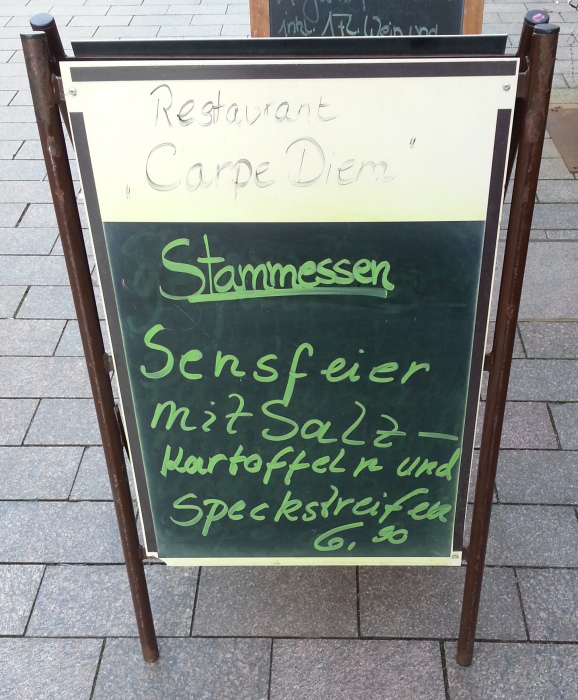 inkl. 1 Wein und
Restaurant
„Carpe Diem"
Stammessen
Sensfeier
mit Salz-
Kartoffeln und
Speckstreifen
6,90